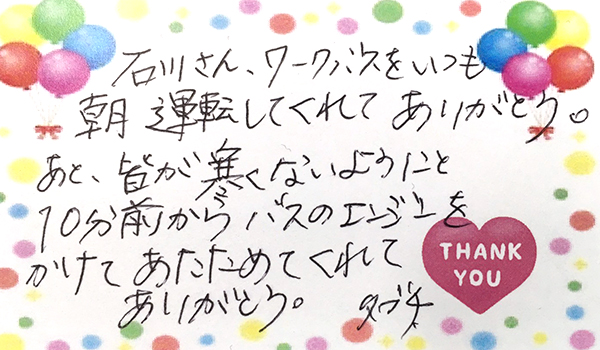 石川さん、ワークバスをいつも
朝 運転してくれて ありがとう。
あと、皆が寒くないようにと
10分前から バスのエンジンを
かけて あたためてくれて
ありがとう。 タブチ
THANK
YOU